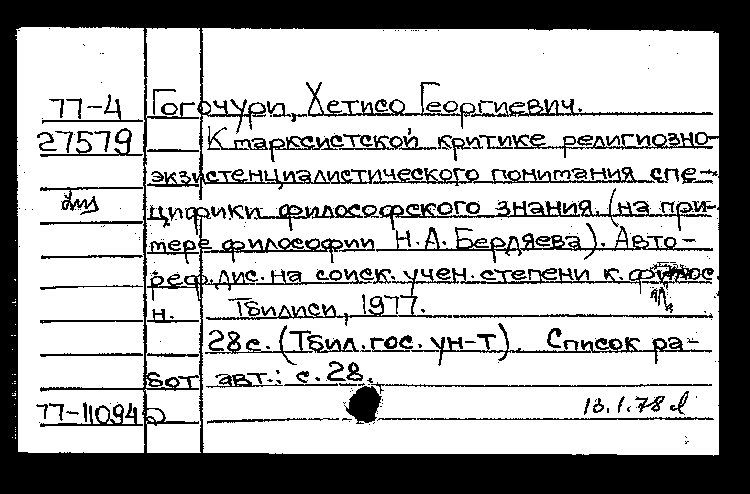 77-4 Гогочури, Хетисо Георгиевич.
27579 К марксистской критике религиозно-
экзистенциалистического понимания спе-
цифики философского знания. (на при-
мере философии Н.А. Бердяева). Авто-
реф. дис. на соиск. учен. степени к. филос.
н. Тбилиси, 1977.
28 с. (Тбил. гос. ун-т). Список ра-
бот авт.: с. 28.
77-11094 13.1.78